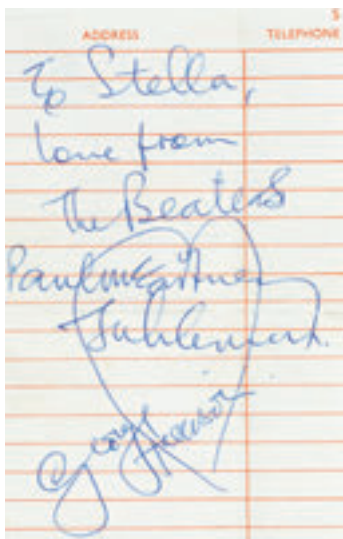 S
ADDRESS TELEPHONE
To Stella,
love from
The Beatles
Paul McCartney
John Lennon.
George Harrison.